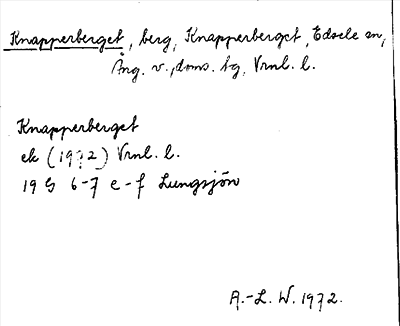 Knapperberget, berg, Knapperberget, Edsele sn,
Ång. v., doms. bg, Vrnl. l.
Knapperberget
ek (1972) Vrnl. l.
19 G 6-7 e-f Lungsjön
A.-L. W. 1972.